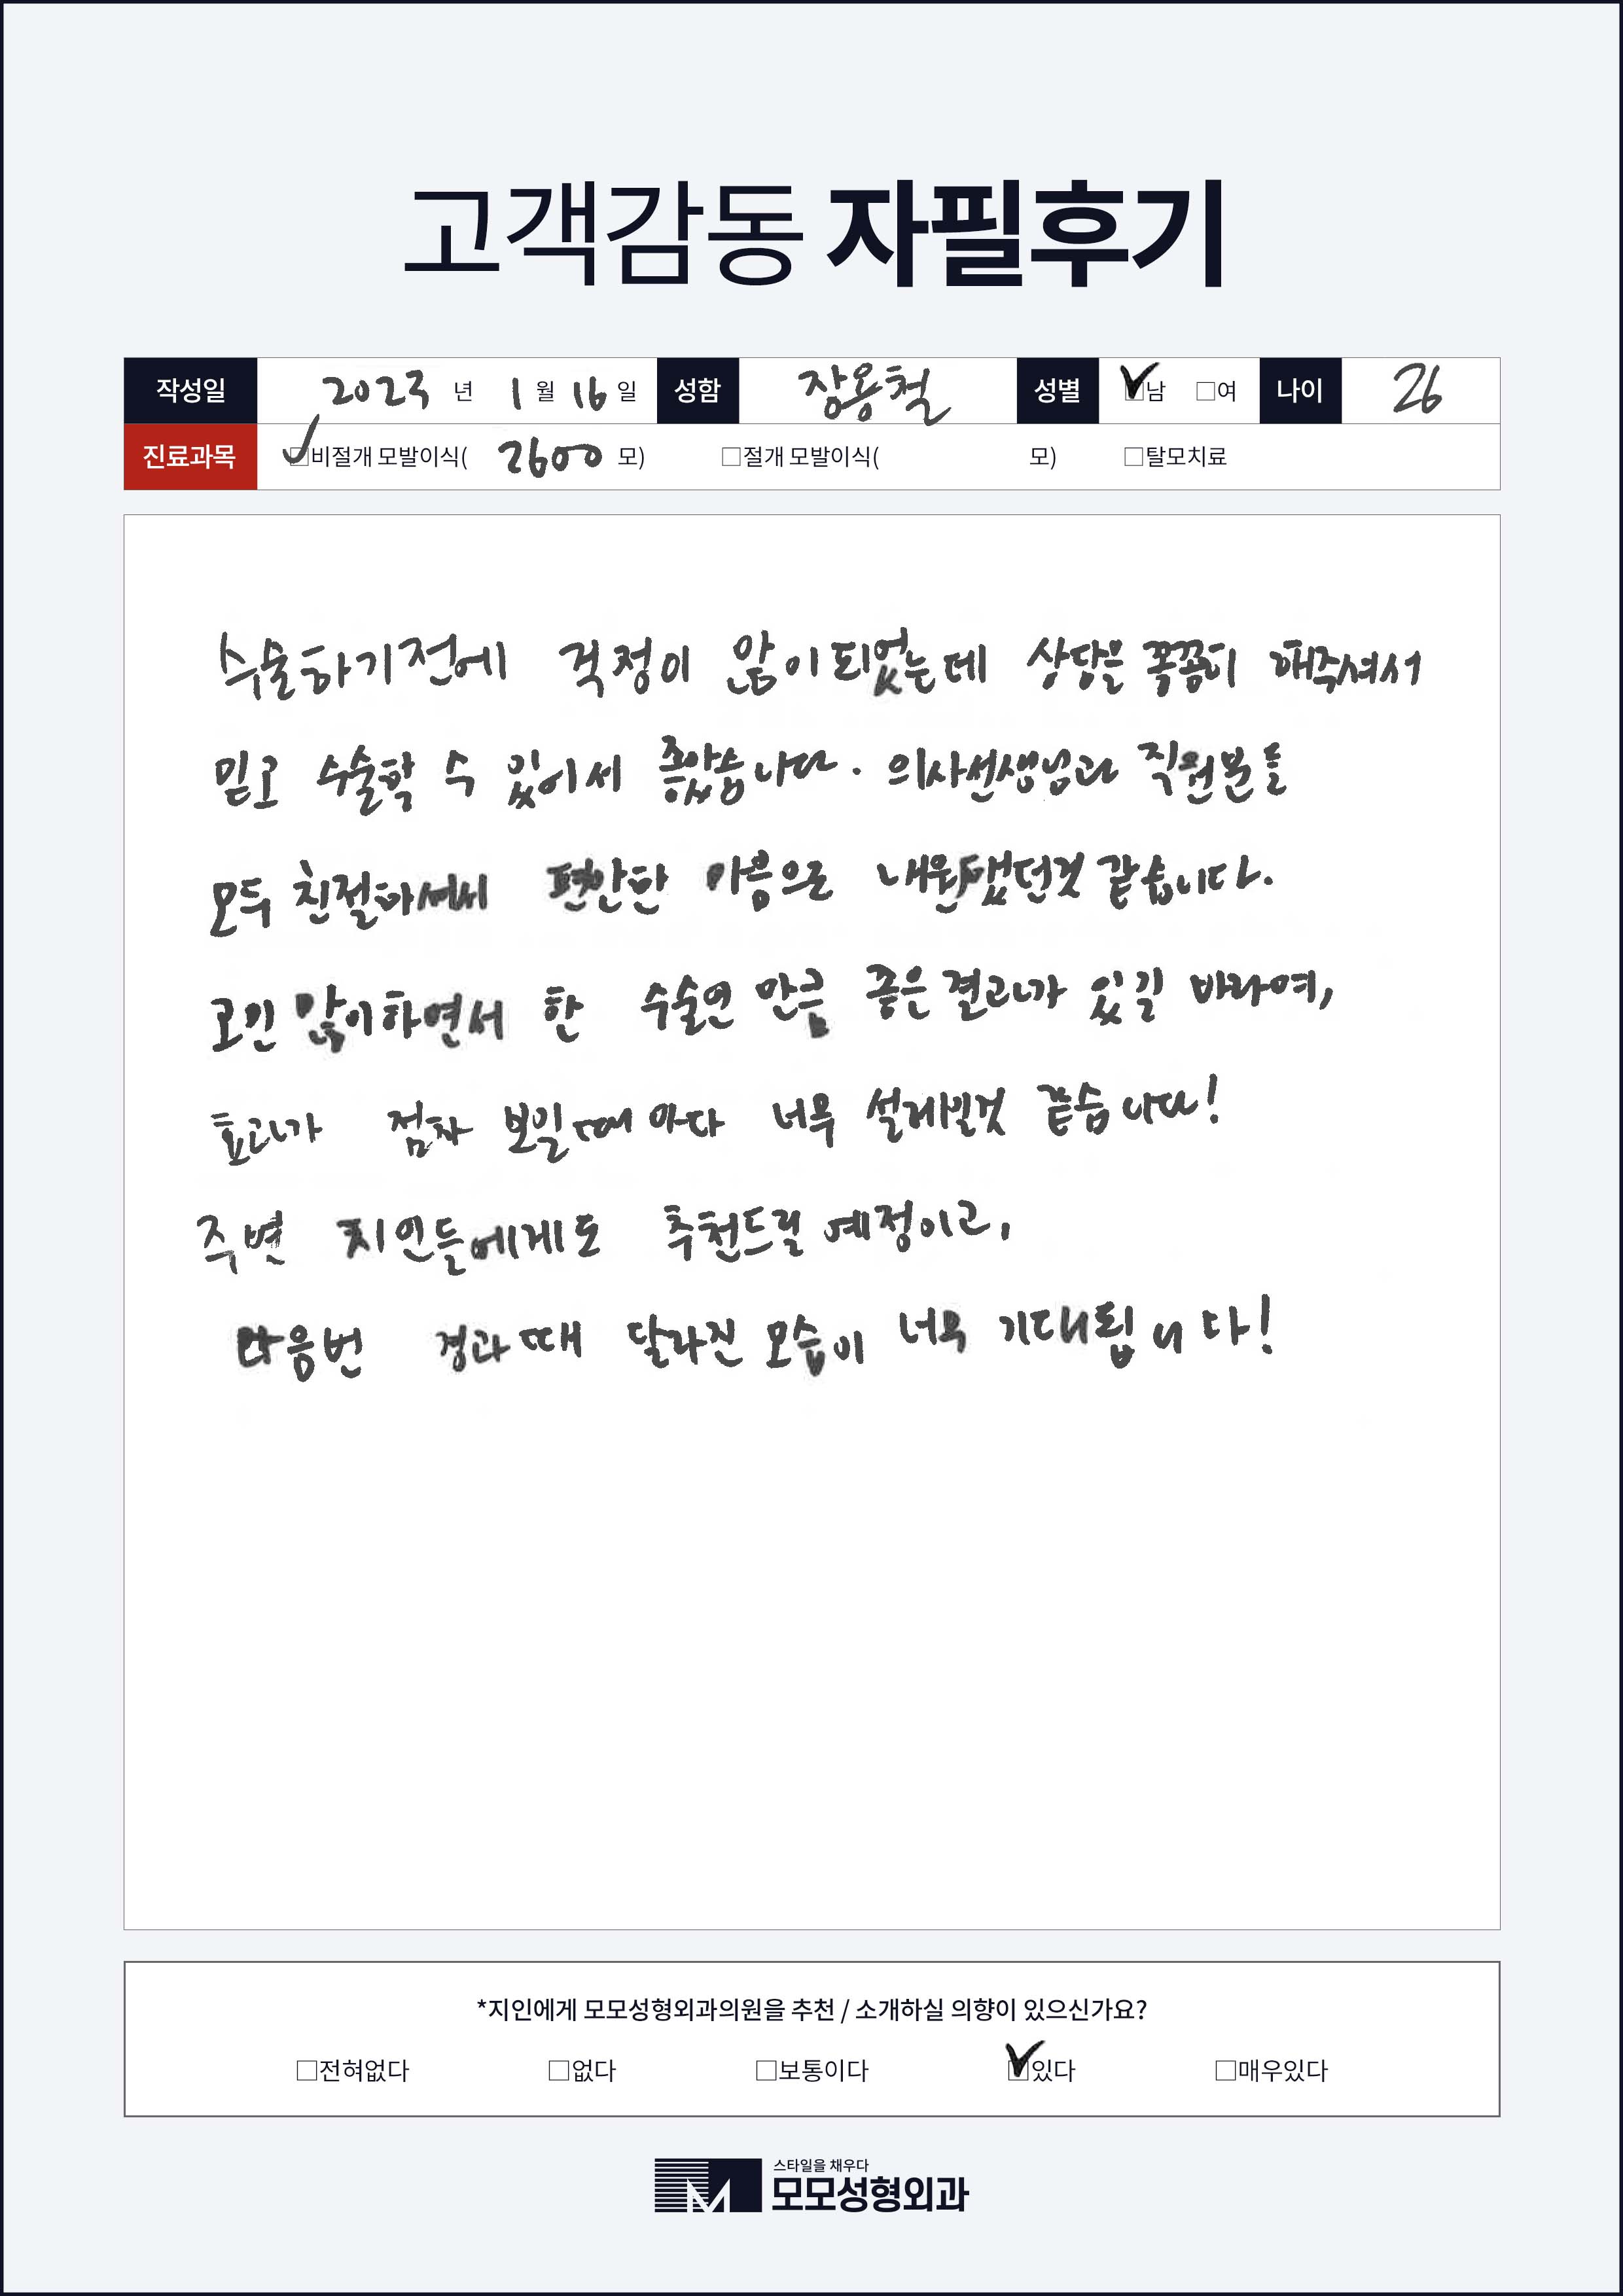 고객감동 자필후기
작성일 2023 년 1 월 16 일 성함 장용철 성별 ☑남 □여 나이 26
진료과목 ☑비절개 모발이식( 2600 모) □절개 모발이식( 모) □탈모치료
수술하기전에 걱정이 많이 되었는데 상담을 꼼꼼히 해주셔서
믿고 수술할 수 있어서 좋았습니다. 의사선생님과 직원분들
모두 친절하셔서 편안한 마음으로 내원했던것 같습니다.
고민 많이하면서 한 수술인 만큼 좋은결과가 있길 바라며,
효과가 점차 보일때 마다 너무 설레일것 같습니다!
주변 지인들에게도 추천드릴 예정이고,
다음번 경과때 달라진 모습이 너무 기대됩니다!
*지인에게 모모성형외과의원을 추천 / 소개하실 의향이 있으신가요?
□전혀없다 □없다 □보통이다 ☑있다 □매우있다
스타일을 채우다
모모성형외과